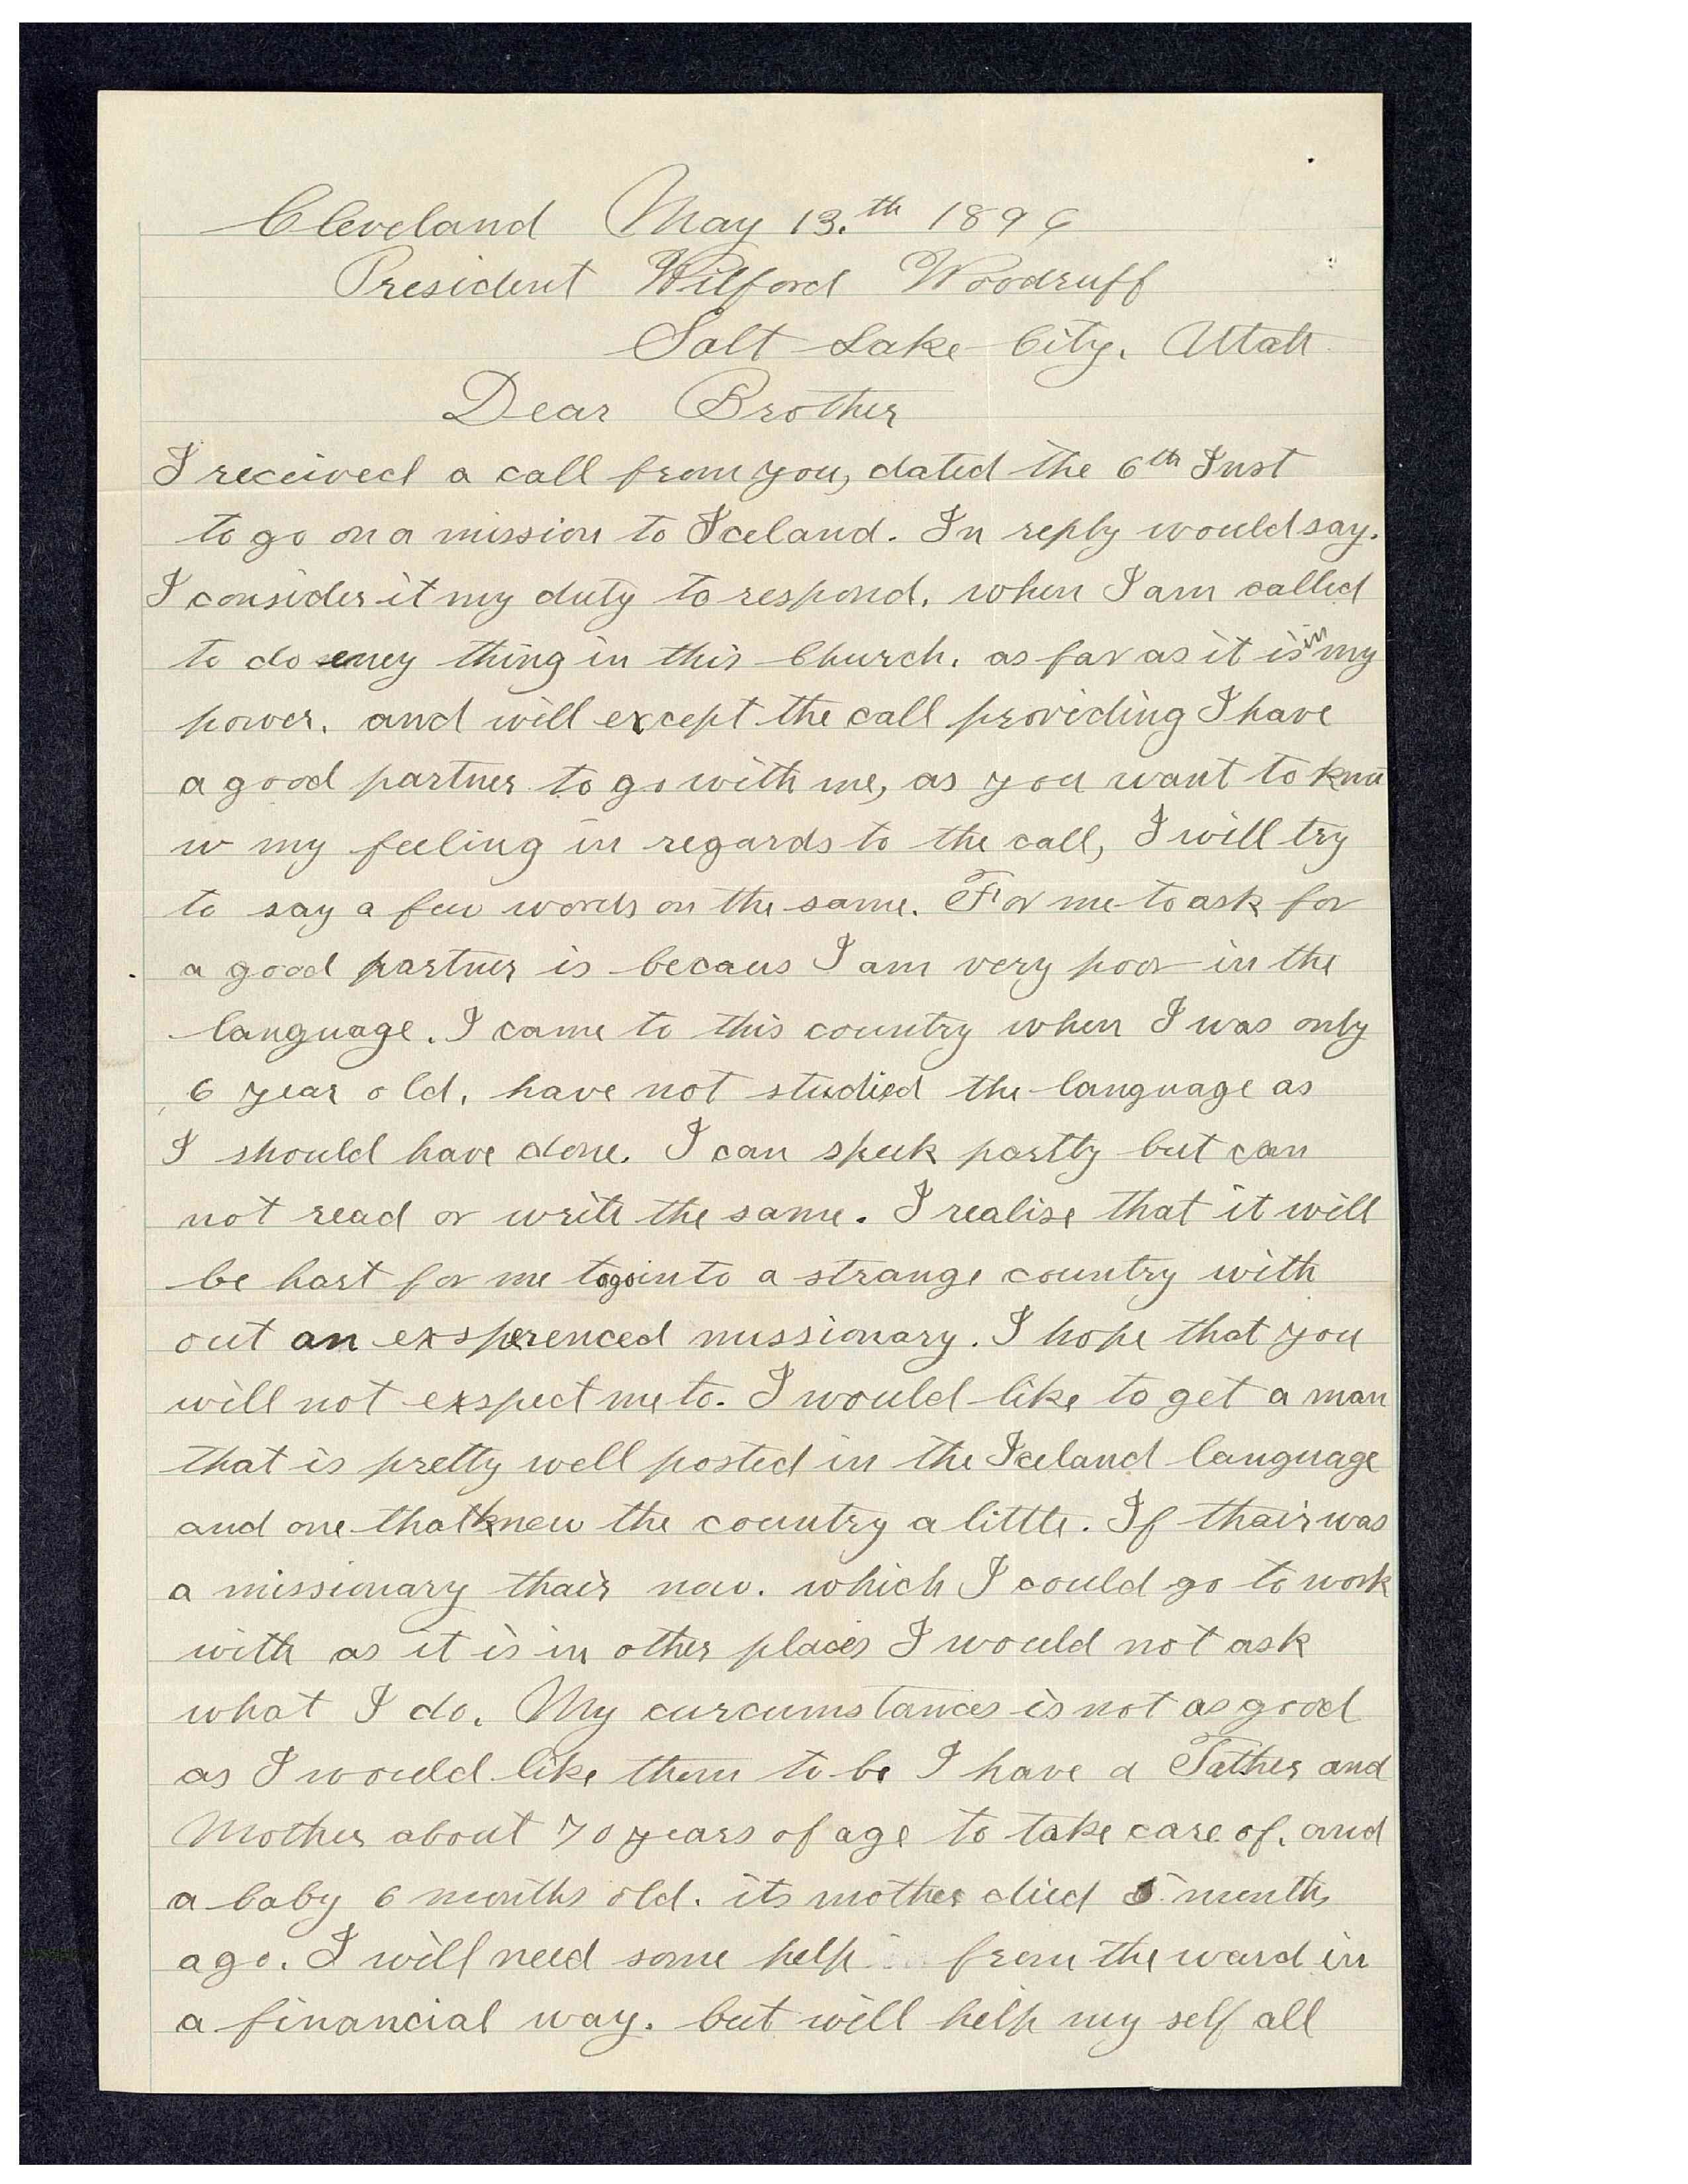 Cleveland May 13.th 1896
President Wilford Woodruff
Salt Lake City. Utah
Dear Brother
I received a call from you, dated the 6th Inst
to go on a mission to Iceland. In reply would say.
I consider it my duty to respond. when I am called
to do eney thing in this Church. as far as it is in my
power. and will except the call providing I have
a good partner to go with me, as you want to kno
w my feeling in regards to the call, I will try
to say a few words on the same. For me to ask for
a good partner is becaus I am very poor in the
language. I came to this country when I was only
6 year old. have not studied the language as
I should have done. I can speek partly but can
not read or write the same. I realise that it will
be hart for me to go into a strange country with
out an exsperenced missionary. I hope that you
will not exspect me to. I would like to get a man
that is pretty well posted in the Iceland language
and one that knew the country a little. If thair was
a missionary thair now. which I could go to work
with as it is in other places I would not ask
what I do. My curcumstances is not as good
as I would like them to be I have a Father and
Mother about 70 years of age to take care of. and
a baby 6 months old. its mother died 5 months
ago. I will need some help from the ward in
a financial way. but will help my self all